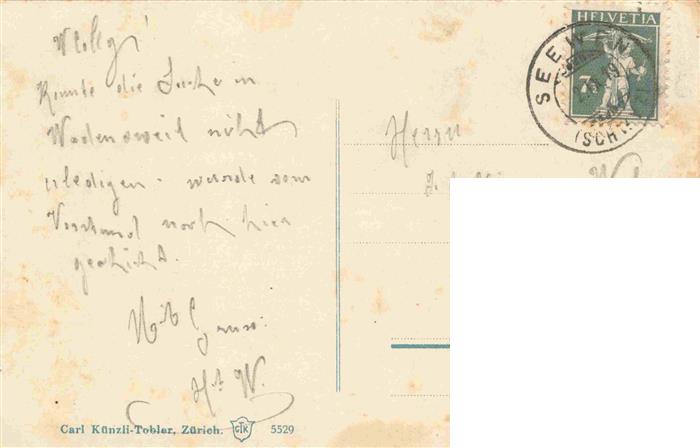 Konnte die Sache in
Wädensweil nicht
erledigen. wurde vom
Vorstand noch hier
geschickt.
Mit Gruss.
Ht W.
Carl Künzli-Tobler, Zürich. CTK 5529
HELVETIA
7
SEEWEN
(SCHWYZ)
Herrn